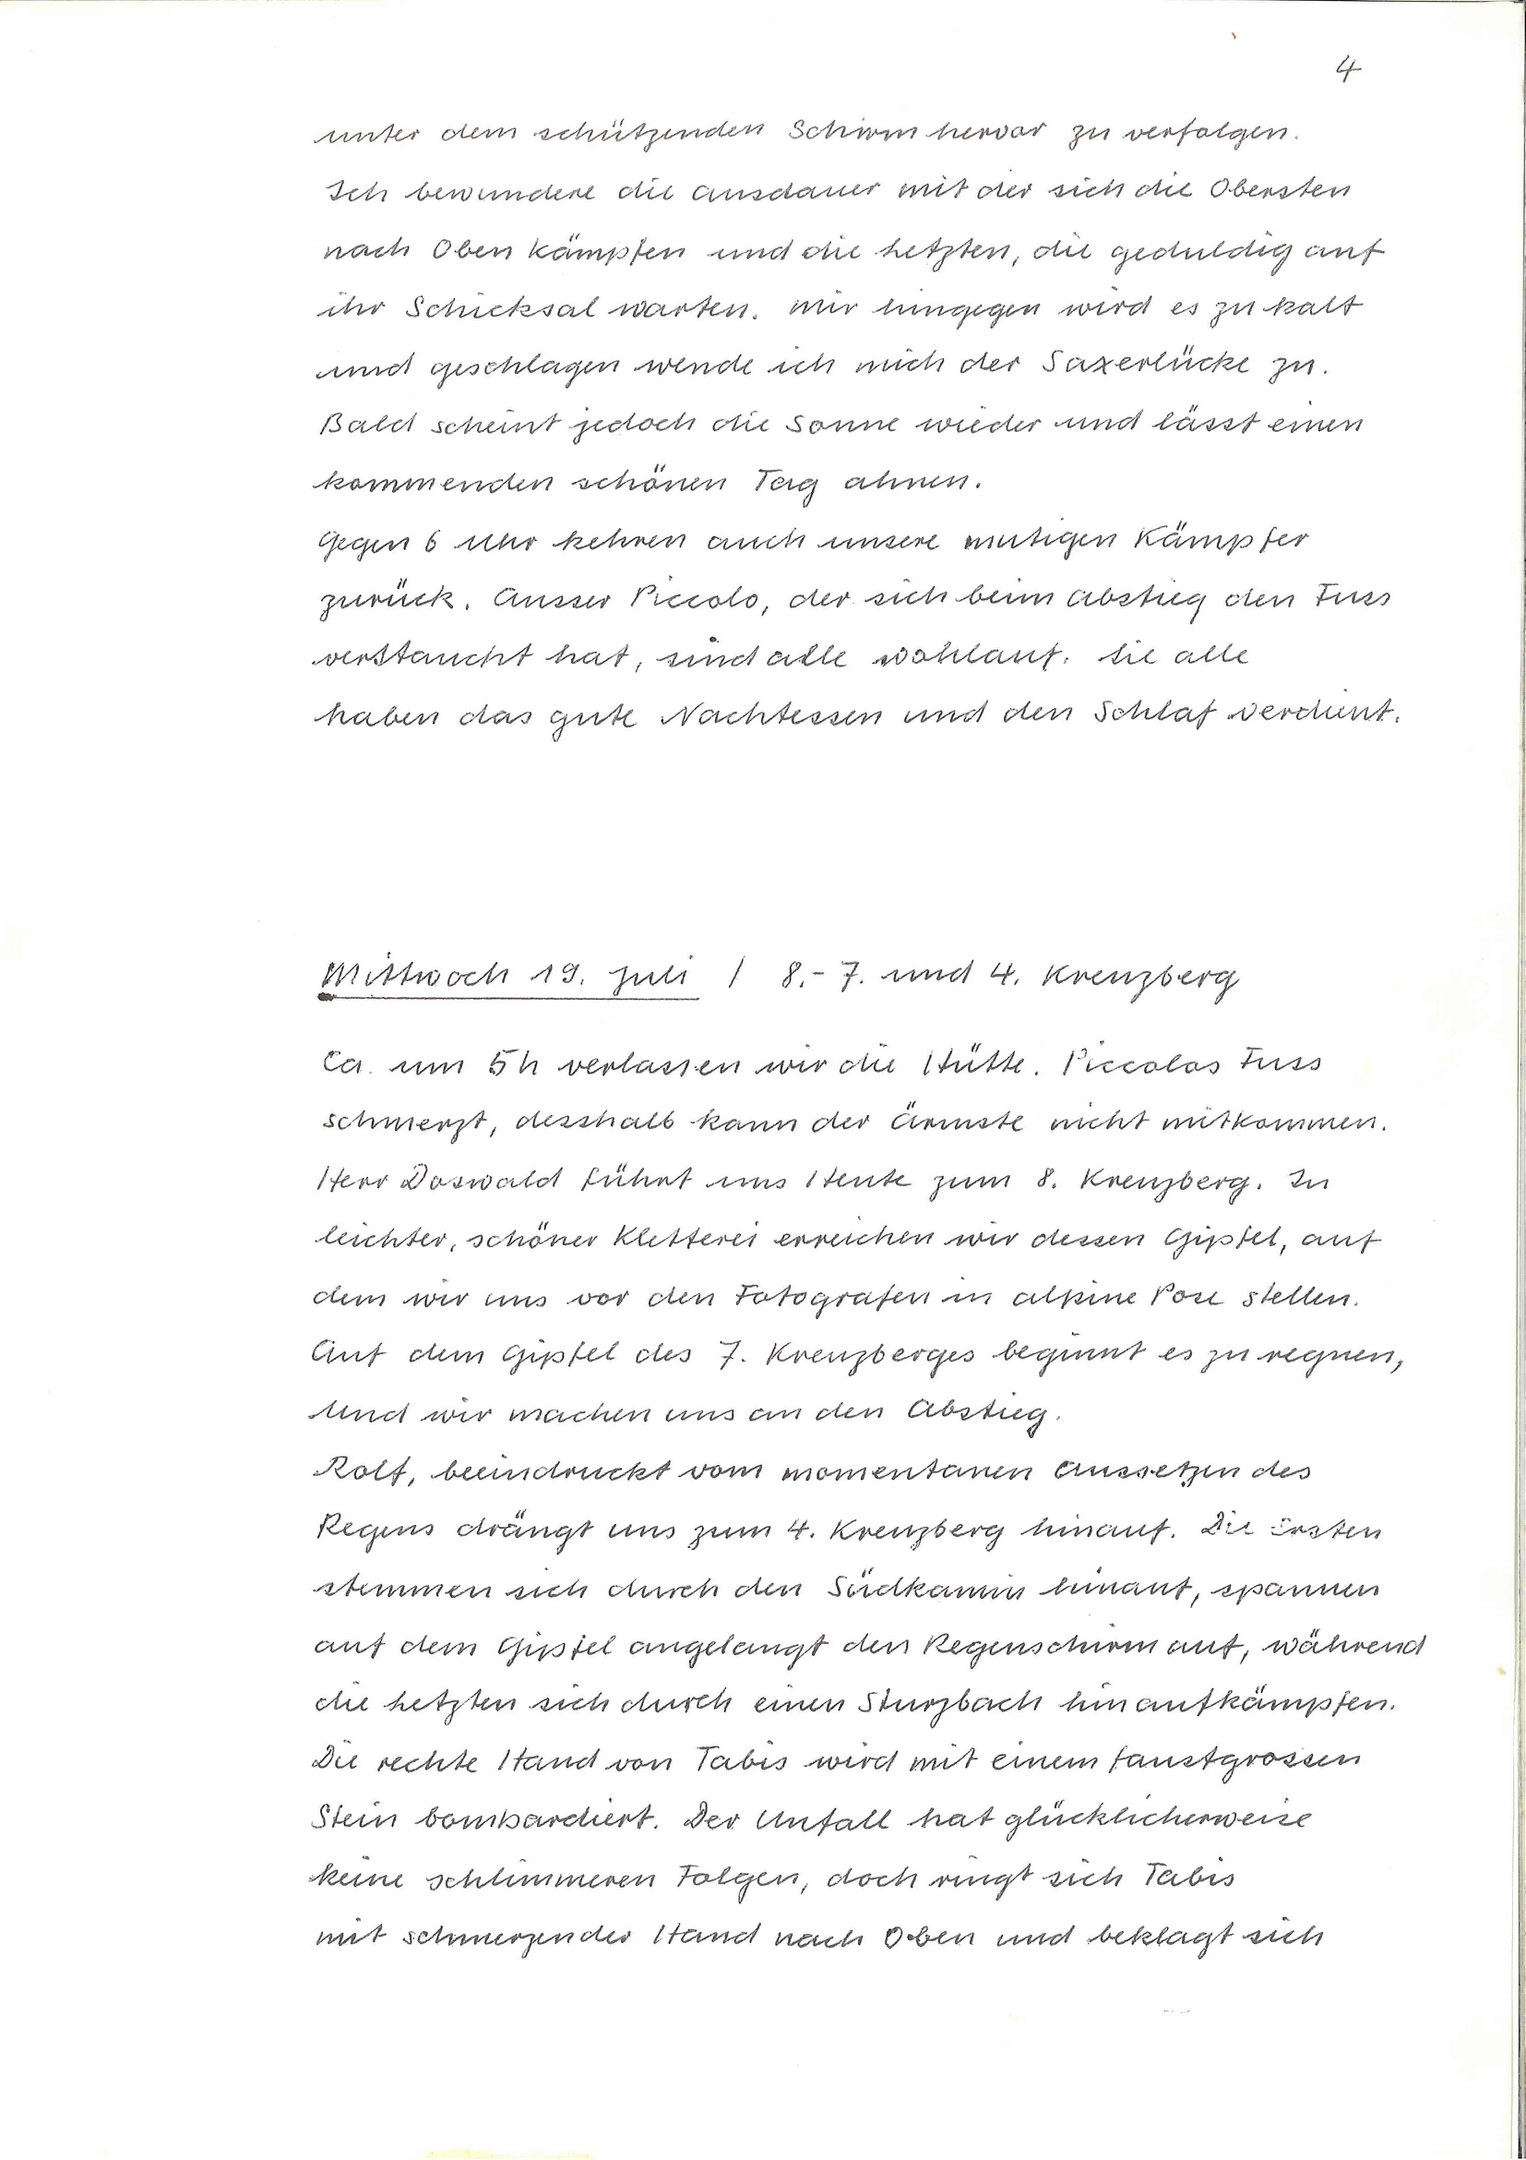 4
unter dem schützenden Schirm hervor zu verfolgen.
Ich bewundere die Ausdauer mit der sich die Obersten
nach Oben kämpfen und die Letzten, die geduldig auf
ihr Schicksal warten. Mir hingegen wird es zu kalt
und geschlagen wende ich mich der Saxerlücke zu.
Bald scheint jedoch die Sonne wieder und lässt einen
kommenden schönen Tag ahnen.
Gegen 6 Uhr kehren auch unsere mutigen Kämpfer
zurück. Ausser Piccolo, der sich beim Abstieg den Fuss
verstaucht hat, sind alle wohlauf. Sie alle
haben das gute Nachtessen und den Schlaf verdient.
Mittwoch 19. Juli / 8.- 7. und 4. Kreuzberg
Ca. um 5h verlassen wir die Hütte. Piccolos Fuss
schmerzt, desshalb kann der Ärmste nicht mitkommen.
Herr Doswald führt uns Heute zum 8. Kreuzberg. In
leichter, schöner Kletterei erreichen wir dessen Gipfel, auf
dem wir uns vor den Fotografen in alpine Pose stellen.
Auf dem Gipfel des 7. Kreuzberges beginnt es zu regnen,
Und wir machen uns an den Abstieg.
Rolf, beeindruckt vom momentanen Aussetzen des
Regens drängt uns zum 4. Kreuzberg hinauf. Die Ersten
stemmen sich durch den Südkamin hinauf, spannen
auf dem Gipfel angelangt den Regenschirm auf, während
die Letzten sich durch einen Sturzbach hinaufkämpfen.
Die rechte Hand von Tabis wird mit einem faustgrossen
Stein bombardiert. Der Unfall hat glücklicherweise
keine schlimmeren Folgen, doch ringt sich Tabis
mit schmerzender Hand nach Oben und beklagt sich